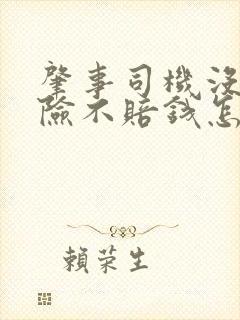 肇事司機沒
險不賠錢怎
賴荣生